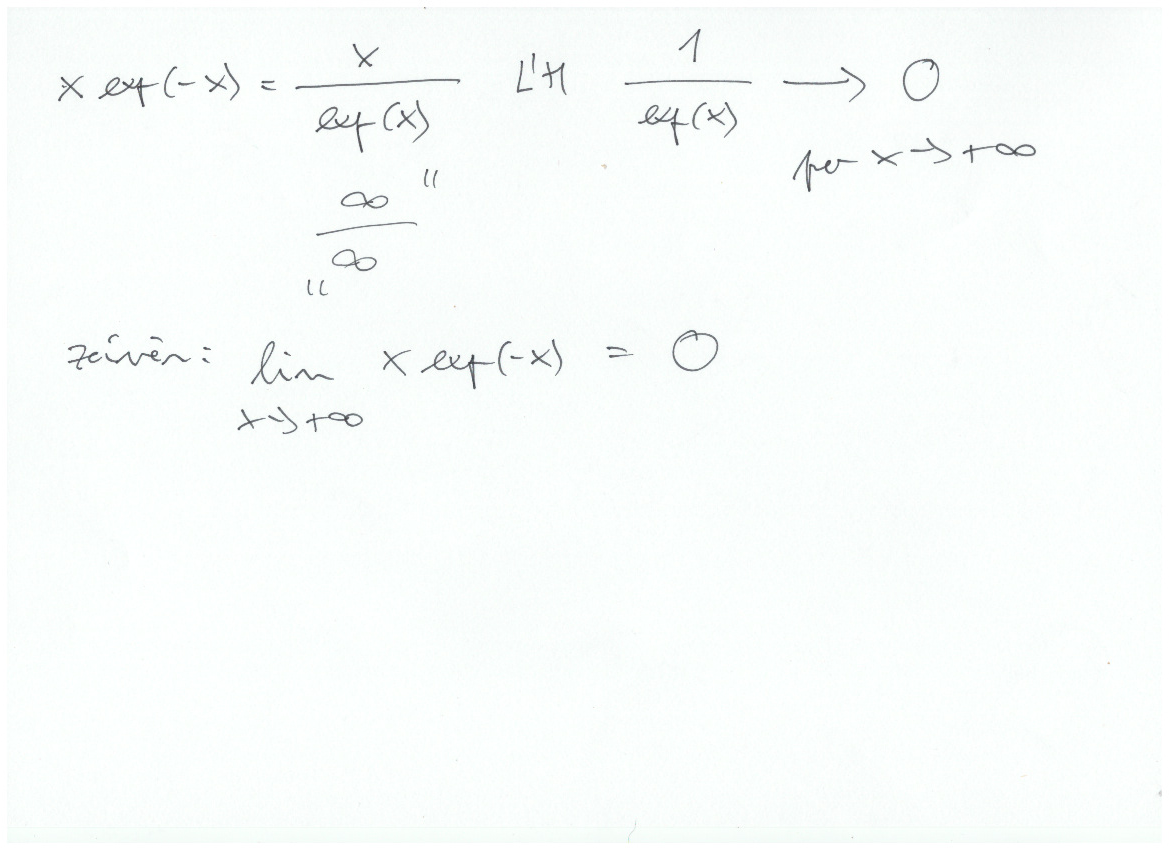 x exp(-x) = x / exp(x) L'H 1 / exp(x) → 0
per x → +∞
"∞ / ∞"
závěr: lim x exp(-x) = 0
x → +∞